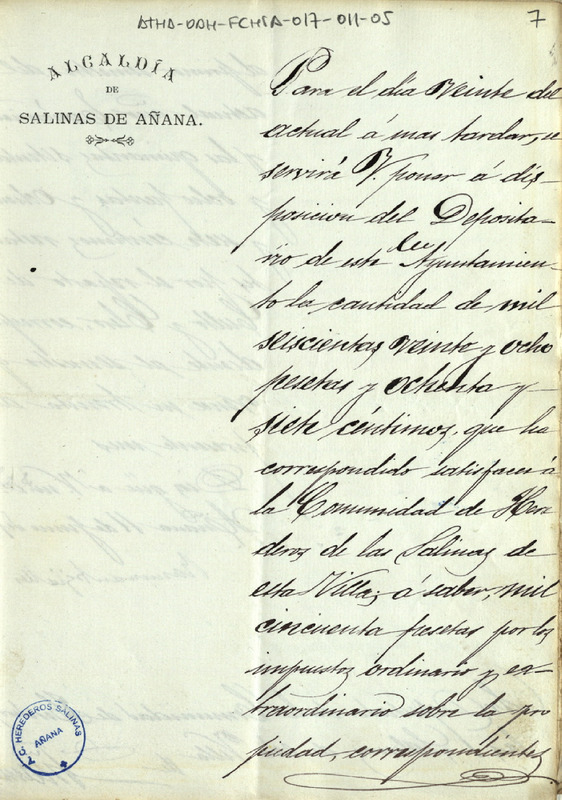 ATHA-DAH-FCHSA-017-011-05
7
ALCALDÍA
DE
SALINAS DE AÑANA.
Para el día veinte del
actual á mas tardar, se
servirá V. poner á dis-
posicion del Deposita-
rio de este
Ayuntamien-
to la cantidad de mil
seiscientas veinte y ocho
pesetas y ochenta y
siete céntimos, que ha
correspondido satisfacer á
la Comunidad de Here-
deros de las Salinas de
esta Villa; á saber, mil
cincuenta pesetas por los
impuestos ordinario y ex-
traordinario sobre la pro
piedad, correspondientes
C. HEREDEROS SALINAS
AÑANA